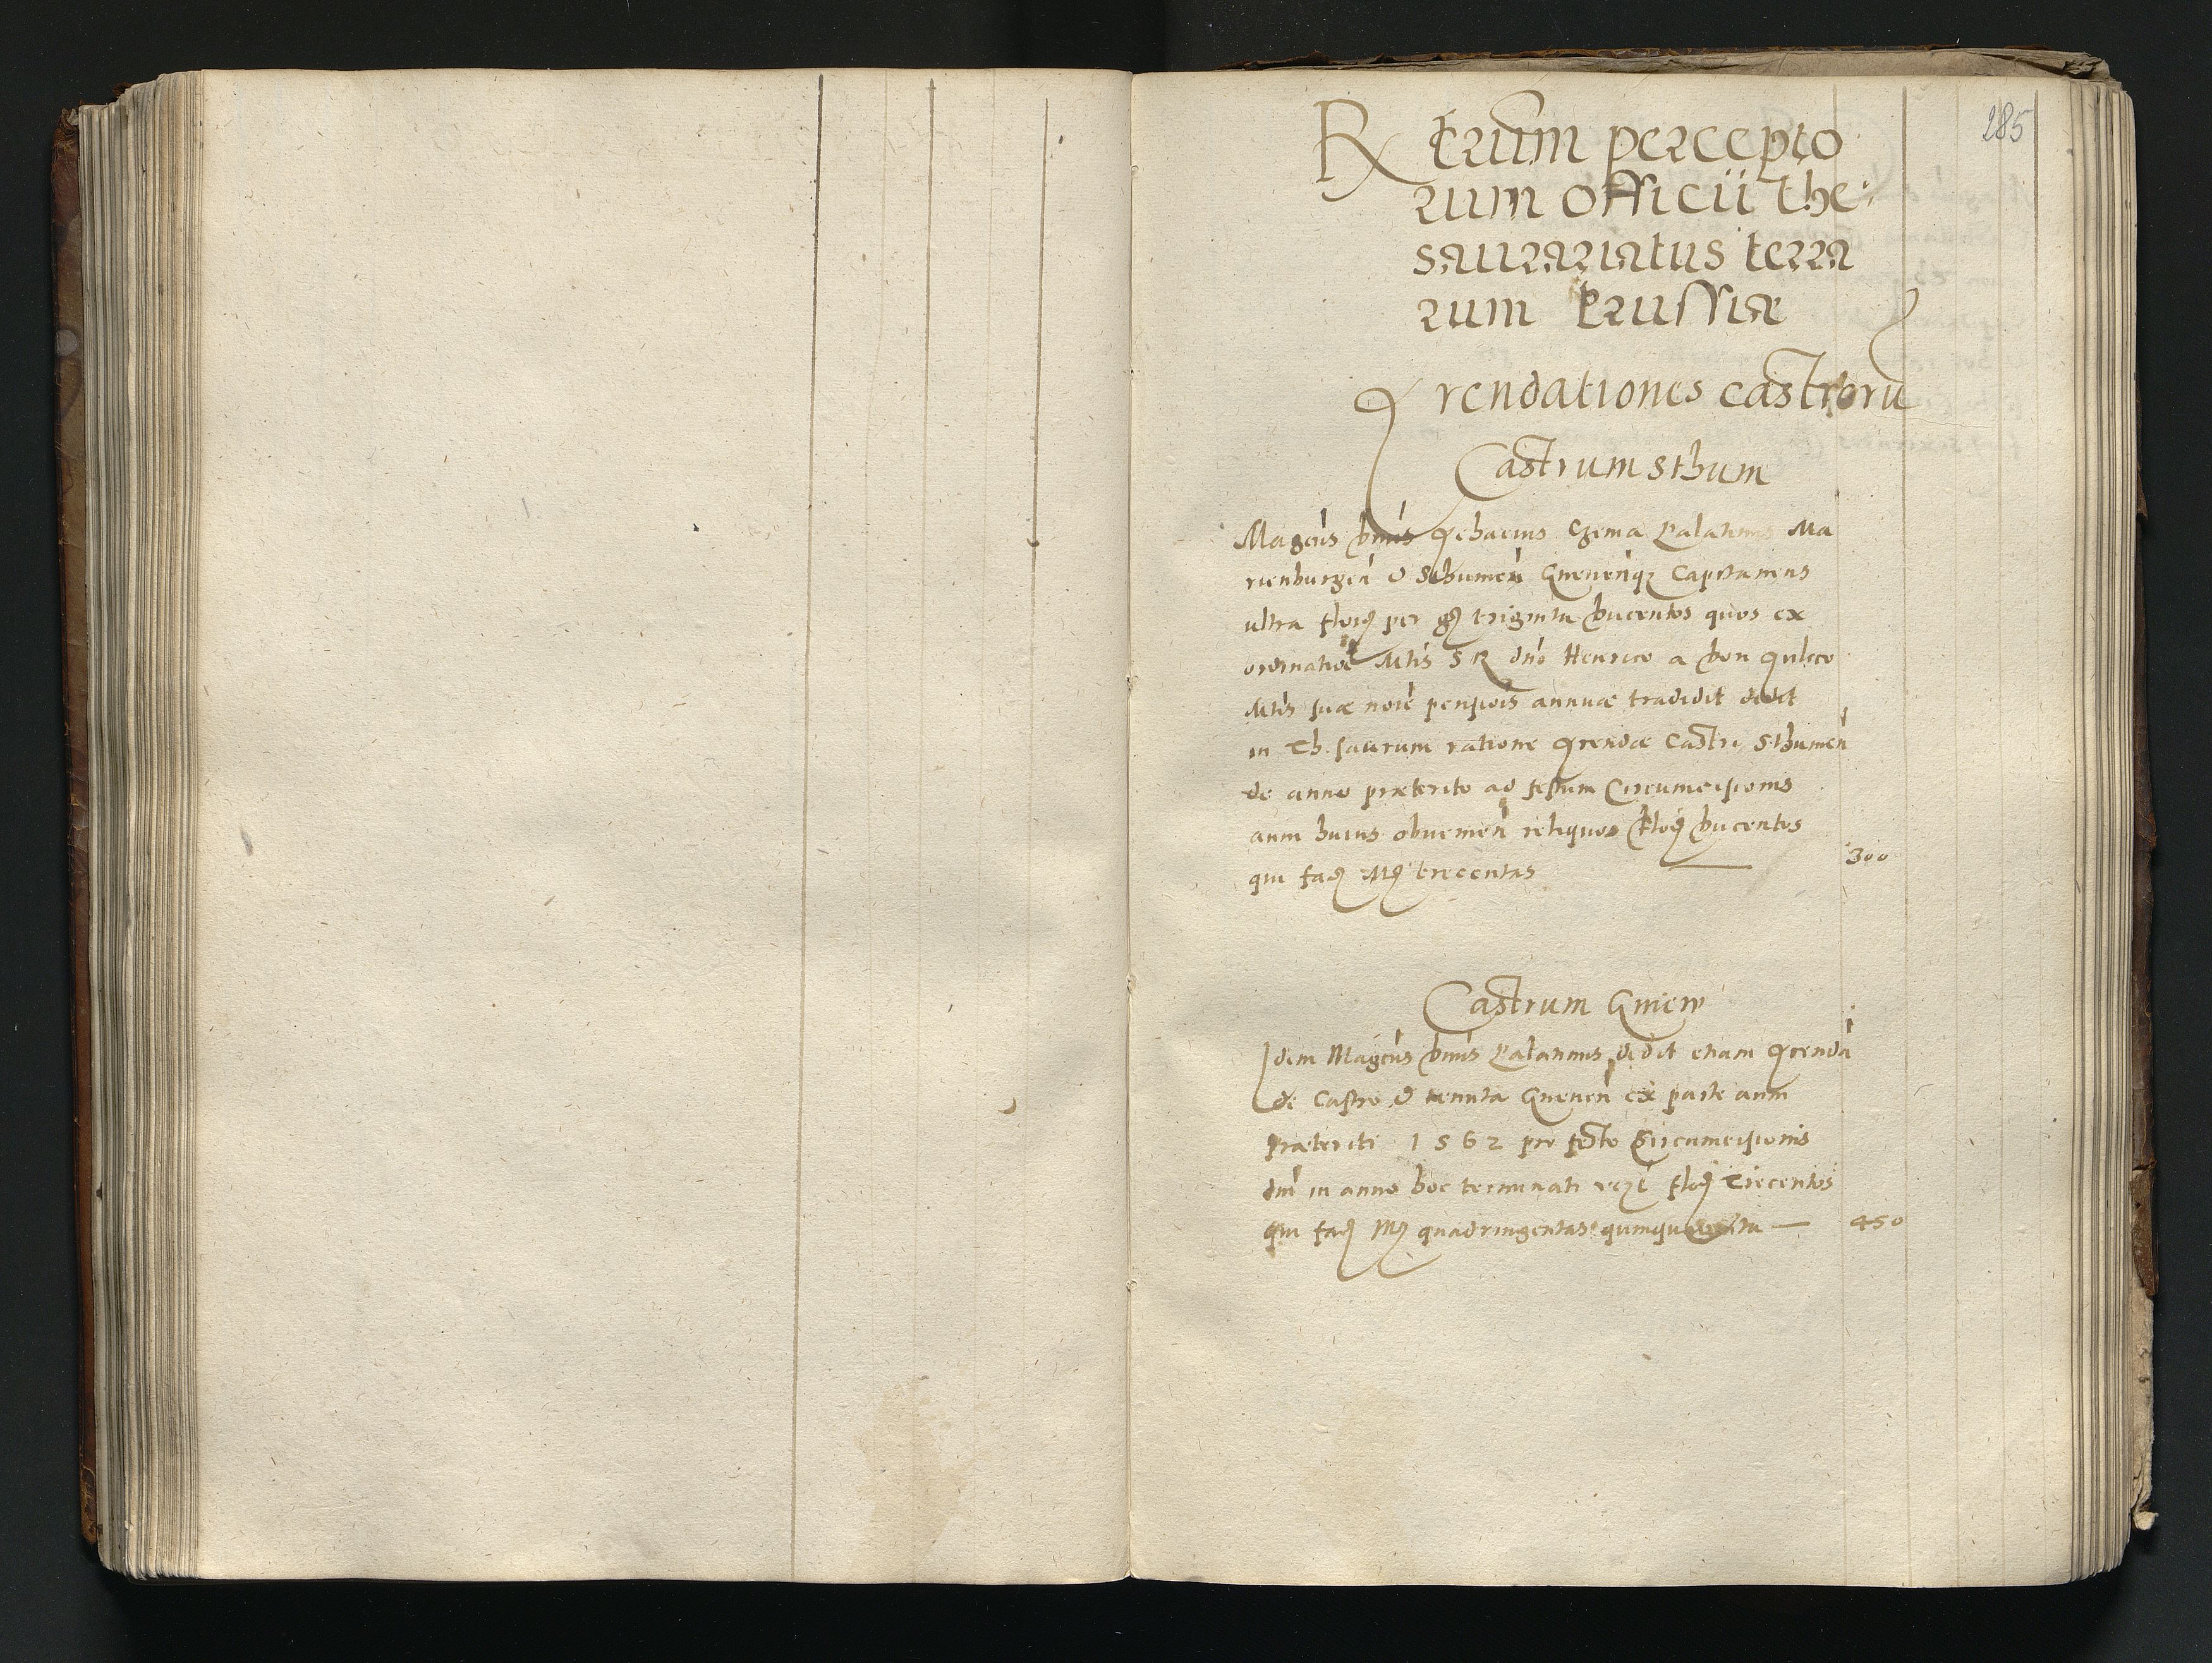 285
Rerum percepto
rum officii the:
saurariatus terra
rum Prussiæ
Arendationes castroru
Castrum Sthum
Magcus Dnus Achacius Czema Palatinus Ma
rienburgen & Sthumen Gneuenq Capitaneus
ultra floq per gq triginta Ducentos quos ex
ordinatioe Mtis S R dno Henrico a
Mtis suæ noie pensiois annuæ tradidit dedit
in Thesaurum ratione Arendæ Castri Sthumen
de anno præterito ad festum Circumcisionis
anni huius obuenien reliquos floq Ducentos
qui faq Mq trecentas 300
Castrum Gniew
Idem Magcus Dnus Palatinus dedit etiam Arenda
de Castro & tenuta Gneuen ex parte anni
Præteriti 1562 pro festo Circumcisionis
dni in anno hoc terminati floq Trecentos
qui faq Mq quadringentas quinquaginta — 450